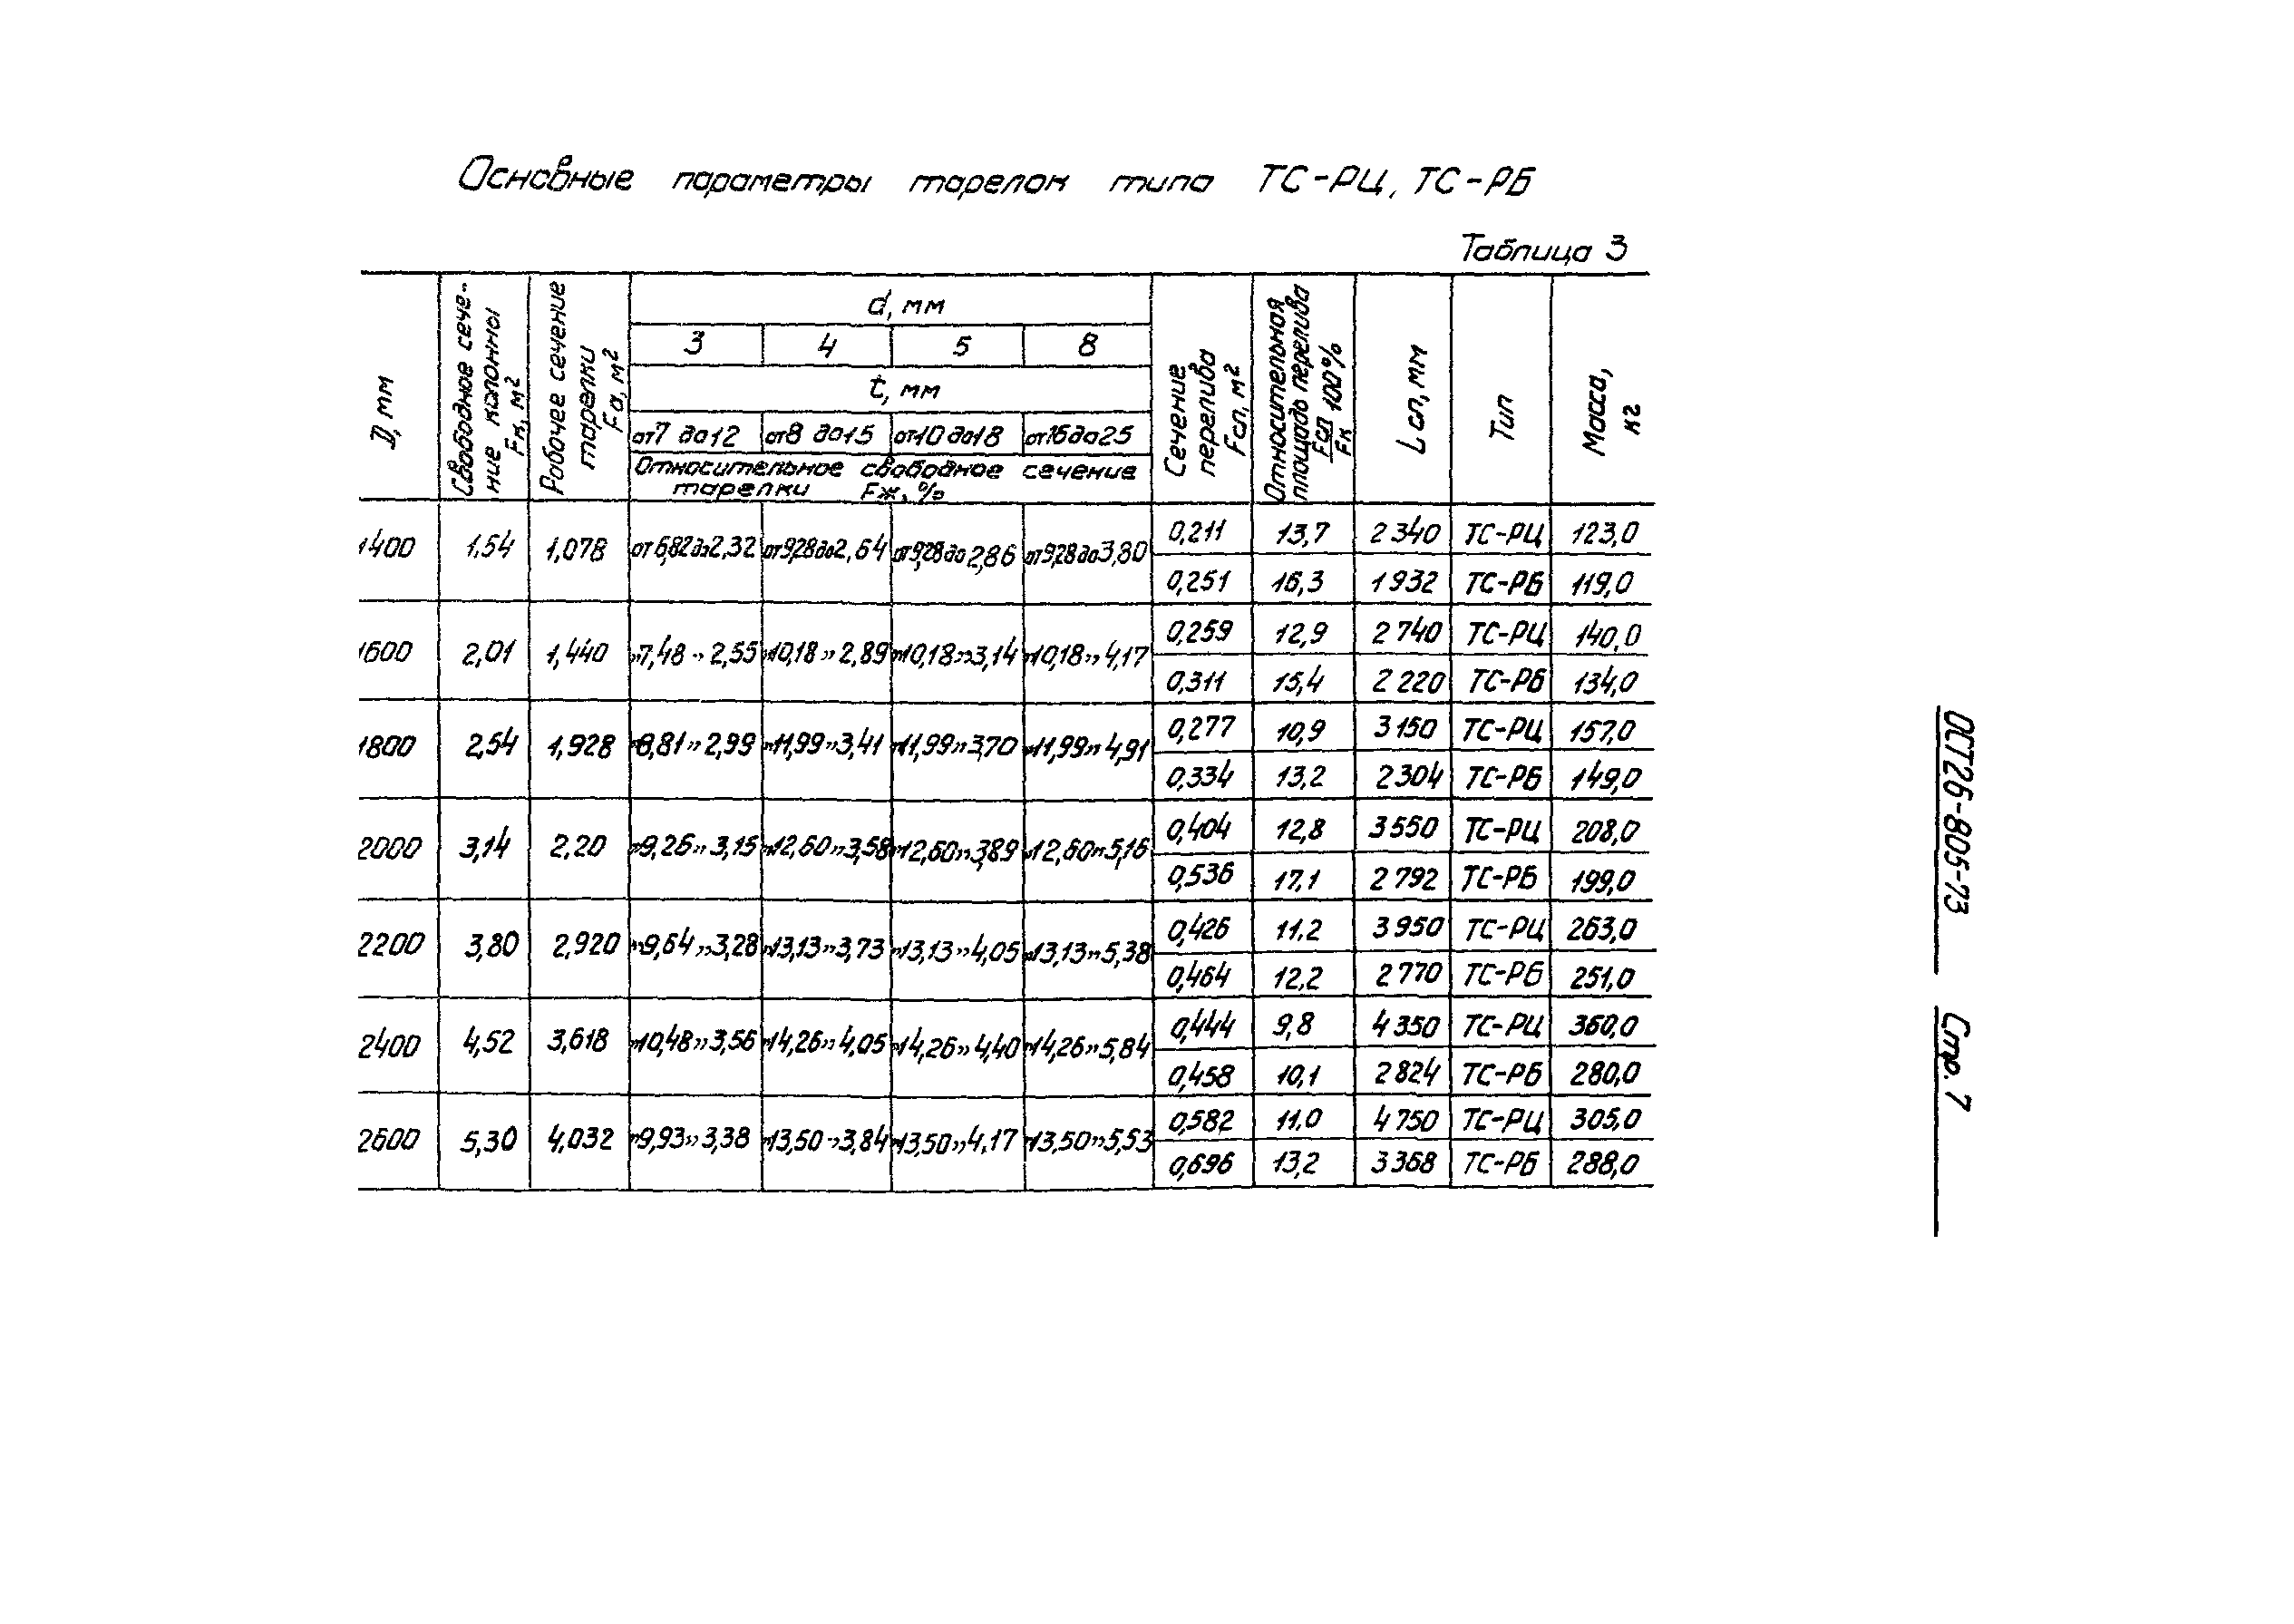 Основные параметры тарелок типа ТС-РЦ, ТС-РБ
Таблица 3
D, мм
Свободное сече-
ние колонны
Fк, м²
Рабочее сечение
тарелки
Fa, м²
d, мм
3 4 5 8
t, мм
от 7 до 12 от 8 до 15 от 10 до 18 от 16 до 25
Относительное свободное сечение
тарелки Fж, %
Сечение
перелива
Fсл, м²
Относительная
площадь перелива
Fсл/Fк 100%
L сл, мм
Тип
Масса,
кг
1400 1,54 1,078 от 6,82 до 2,32 от 9,28 до 2,64 от 9,28 до 2,86 от 9,28 до 3,80
0,211 13,7 2 340 ТС-РЦ 123,0
0,251 16,3 1 932 ТС-РБ 119,0
1600 2,01 1,440 " 7,48 " 2,55 " 10,18 " 2,89 " 10,18 " 3,14 " 10,18 " 4,17
0,259 12,9 2 740 ТС-РЦ 140,0
0,311 15,4 2 220 ТС-РБ 134,0
1800 2,54 1,928 " 8,81 " 2,99 " 11,99 " 3,41 " 11,99 " 3,70 " 11,99 " 4,91
0,277 10,9 3 150 ТС-РЦ 157,0
0,334 13,2 2 304 ТС-РБ 149,0
2000 3,14 2,20 " 9,26 " 3,15 " 12,60 " 3,58 " 12,60 " 3,89 " 12,60 " 5,16
0,404 12,8 3 550 ТС-РЦ 208,0
0,536 17,1 2 792 ТС-РБ 199,0
2200 3,80 2,920 " 9,64 " 3,28 " 13,13 " 3,73 " 13,13 " 4,05 " 13,13 " 5,38
0,426 11,2 3 950 ТС-РЦ 263,0
0,464 12,2 2 770 ТС-РБ 251,0
2400 4,52 3,618 " 10,48 " 3,56 " 14,26 " 4,05 " 14,26 " 4,40 " 14,26 " 5,84
0,444 9,8 4 350 ТС-РЦ 360,0
0,458 10,1 2 824 ТС-РБ 280,0
2600 5,30 4,032 " 9,93 " 3,38 " 13,50 " 3,84 " 13,50 " 4,17 " 13,50 " 5,53
0,582 11,0 4 750 ТС-РЦ 305,0
0,696 13,2 3 368 ТС-РБ 288,0
ОСТ26-805-73 Стр. 7